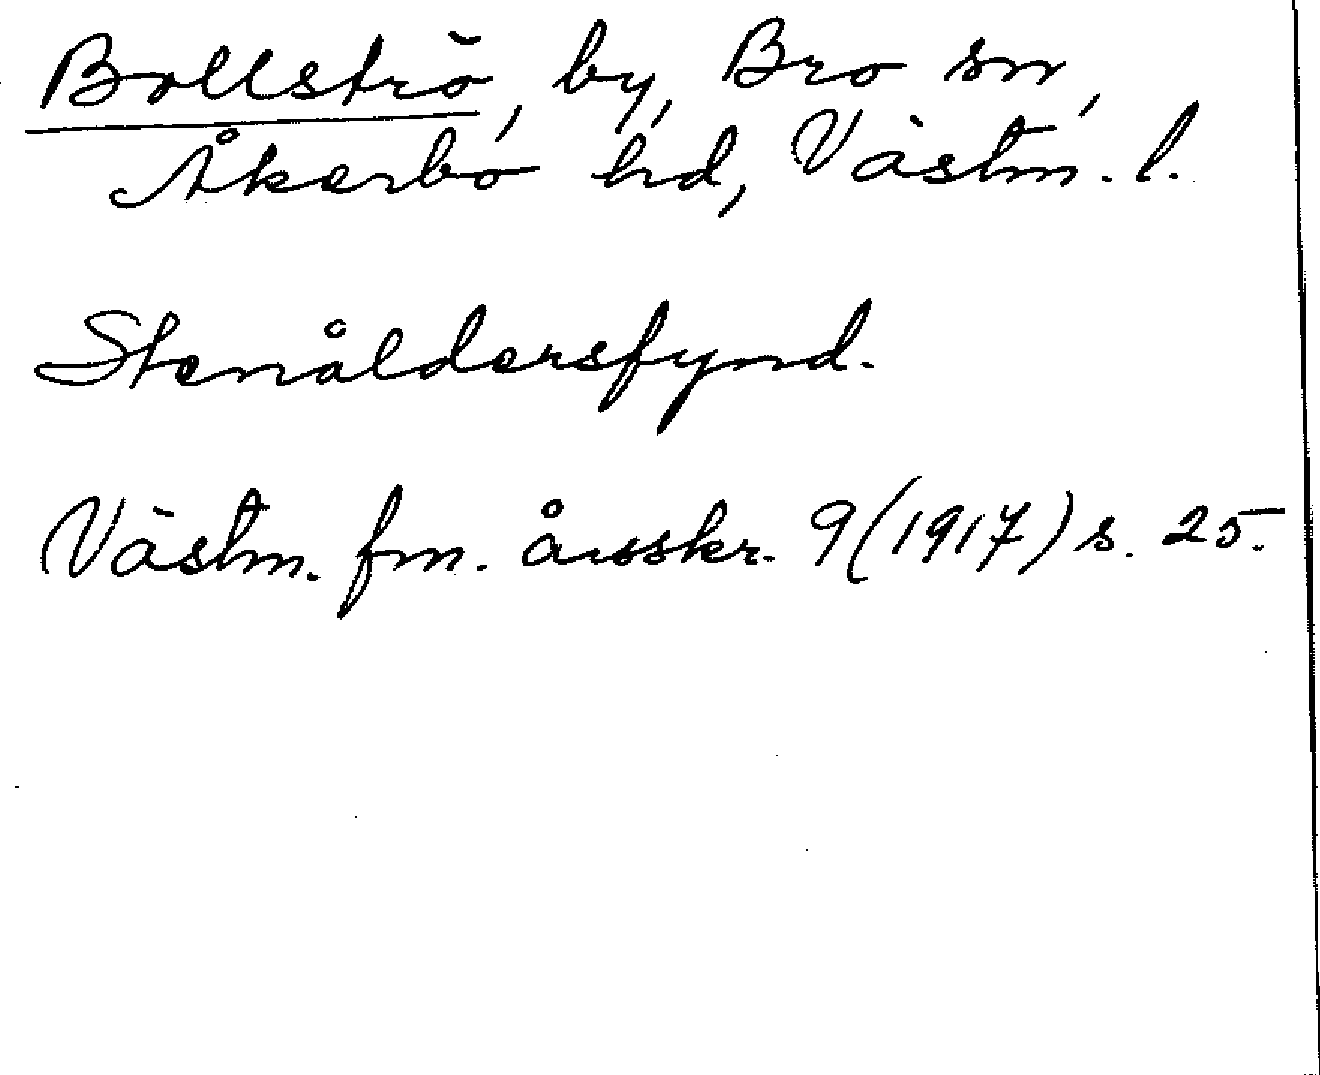 Bollströ, by, Bro sn,
Åkerbo hd, Västm. l.
Stenåldersfynd.
Västm. fm. årsskr. 9 (1917) s. 25.